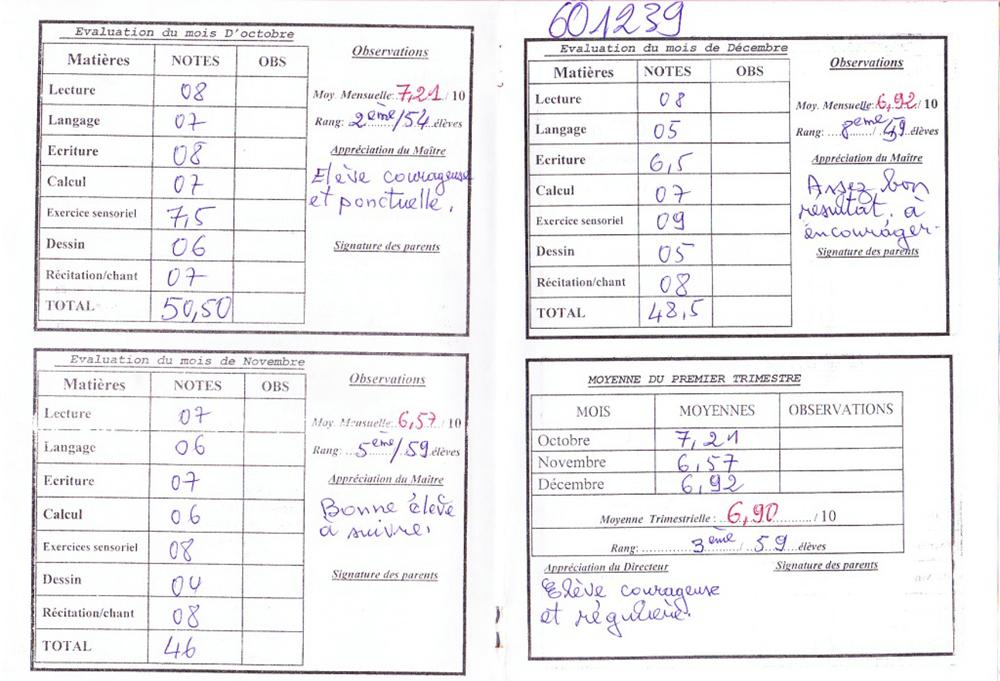 601239
Evaluation du mois D'octobre
Matières NOTES OBS
Lecture 08
Langage 07
Ecriture 08
Calcul 07
Exercice sensoriel 7,5
Dessin 06
Récitation/chant 07
TOTAL 50,50
Observations
Moy. Mensuelle: 7,21 / 10
Rang: 2ème/54 élèves
Appréciation du Maître
Elève courageuse
et ponctuelle.
Signature des parents
Evaluation du mois de Novembre
Matières NOTES OBS
Lecture 07
Langage 06
Ecriture 07
Calcul 06
Exercices sensoriel 08
Dessin 04
Récitation/chant 08
TOTAL 46
Observations
Moy. Mensuelle: 6,57 / 10
Rang: 5ème/59 élèves
Appréciation du Maître
Bonne élève
à suivre.
Signature des parents
Evaluation du mois de Décembre
Matières NOTES OBS
Lecture 08
Langage 05
Ecriture 6,5
Calcul 07
Exercice sensoriel 09
Dessin 05
Récitation/chant 08
TOTAL 48,5
Observations
Moy. Mensuelle: 6,92 / 10
Rang: 8ème / 59 élèves
Appréciation du Maître
Assez bon
résultat. à
encourager.
Signature des parents
MOYENNE DU PREMIER TRIMESTRE
MOIS MOYENNES OBSERVATIONS
Octobre 7,21
Novembre 6,57
Décembre 6,92
Moyenne Trimestrielle : 6,90 / 10
Rang: 3ème / 59 élèves
Appréciation du Directeur Signature des parents
Elève courageuse
et régulière.